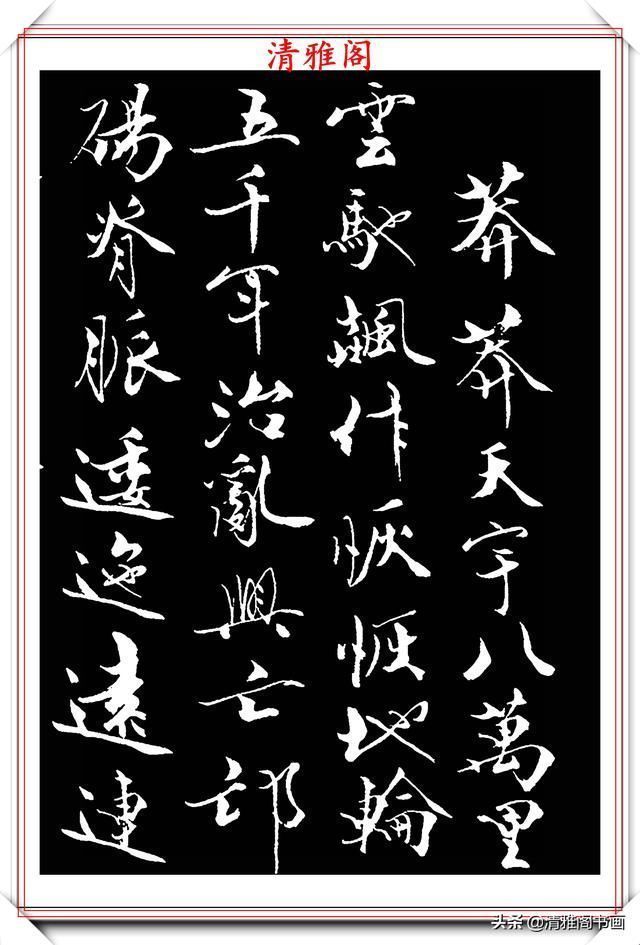 清雅阁
莽莽天宇八萬里
雲馳飆作恢恢地輪
五千年治亂興亡邙
碭脊脈逶迤遠連
头条@清雅阁书画